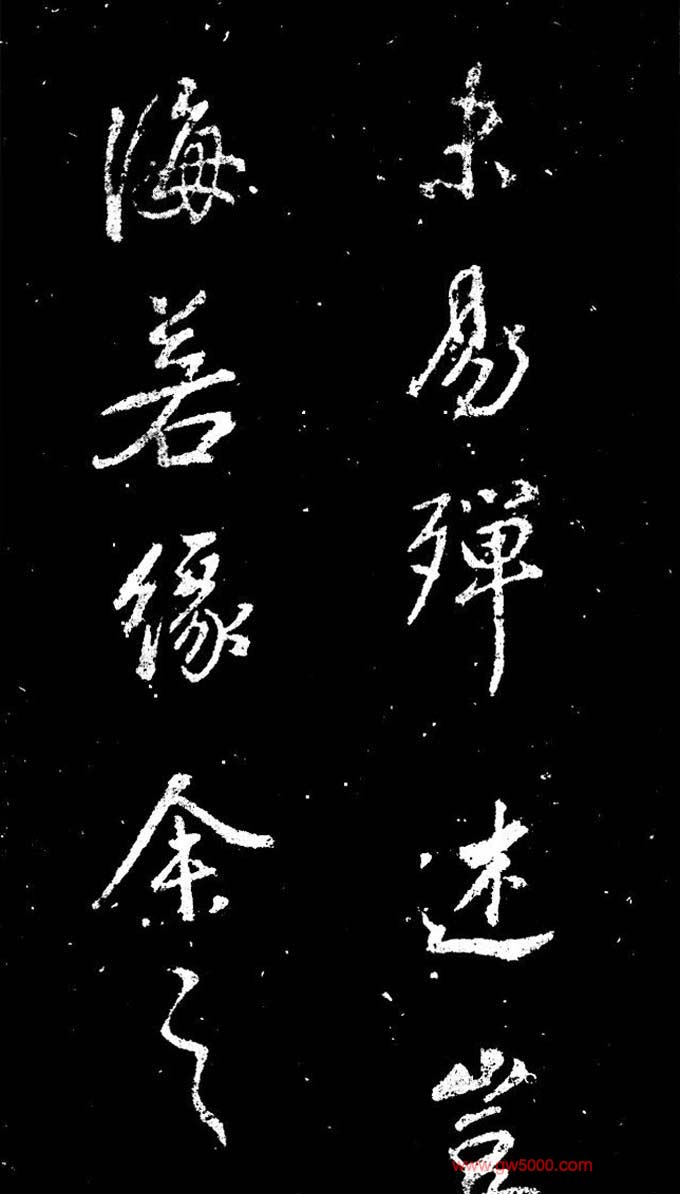 未易殫述豈
海若緣余之
www.gw5000.com